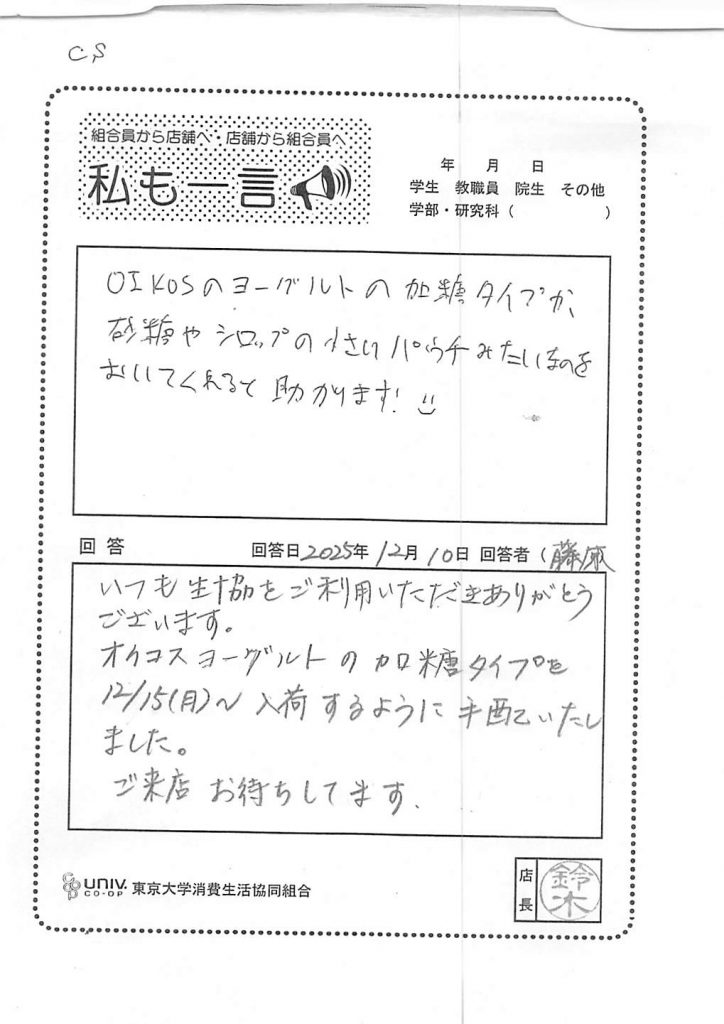 CS
組合員から店舗へ・店舗から組合員へ
私も一言
年 月 日
学生 教職員 院生 その他
学部・研究科( )
OIKOSのヨーグルトの加糖タイプか、
砂糖やシロップの小さいパウチみたいなのを
おいてくれると助かります!
回答 回答日2025年12月10日 回答者(藤原
いつも生協をご利用いただきありがとう
ございます。
オイコスヨーグルトの加糖タイプを
12/15(月)〜入荷するように手配いたし
ました。
ご来店お待ちしてます.
UNIV.
CO-OP
東京大学消費生活協同組合
店長
鈴木